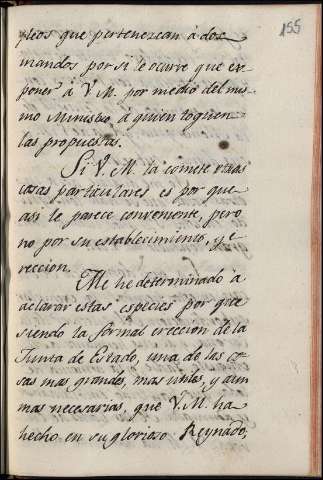 155
pleos que pertenezcan à dos
mandos por si le ocurre que ex
poner à V. M. por medio del mis
mo Ministro à quien toquen
las propuestas.
Si V. M. la comete otras
cosas particulares es por que
asi le parece conveniente, pero
no por su establecimiento, y e
reccion.
Me he determinado à
aclarar estas especies por que
siendo la formal ereccion de la
Junta de Estado, una de las co
sas mas grandes, mas utiles, y aun
mas necesarias, que V. M. ha
hecho en su glorioso Reynado,